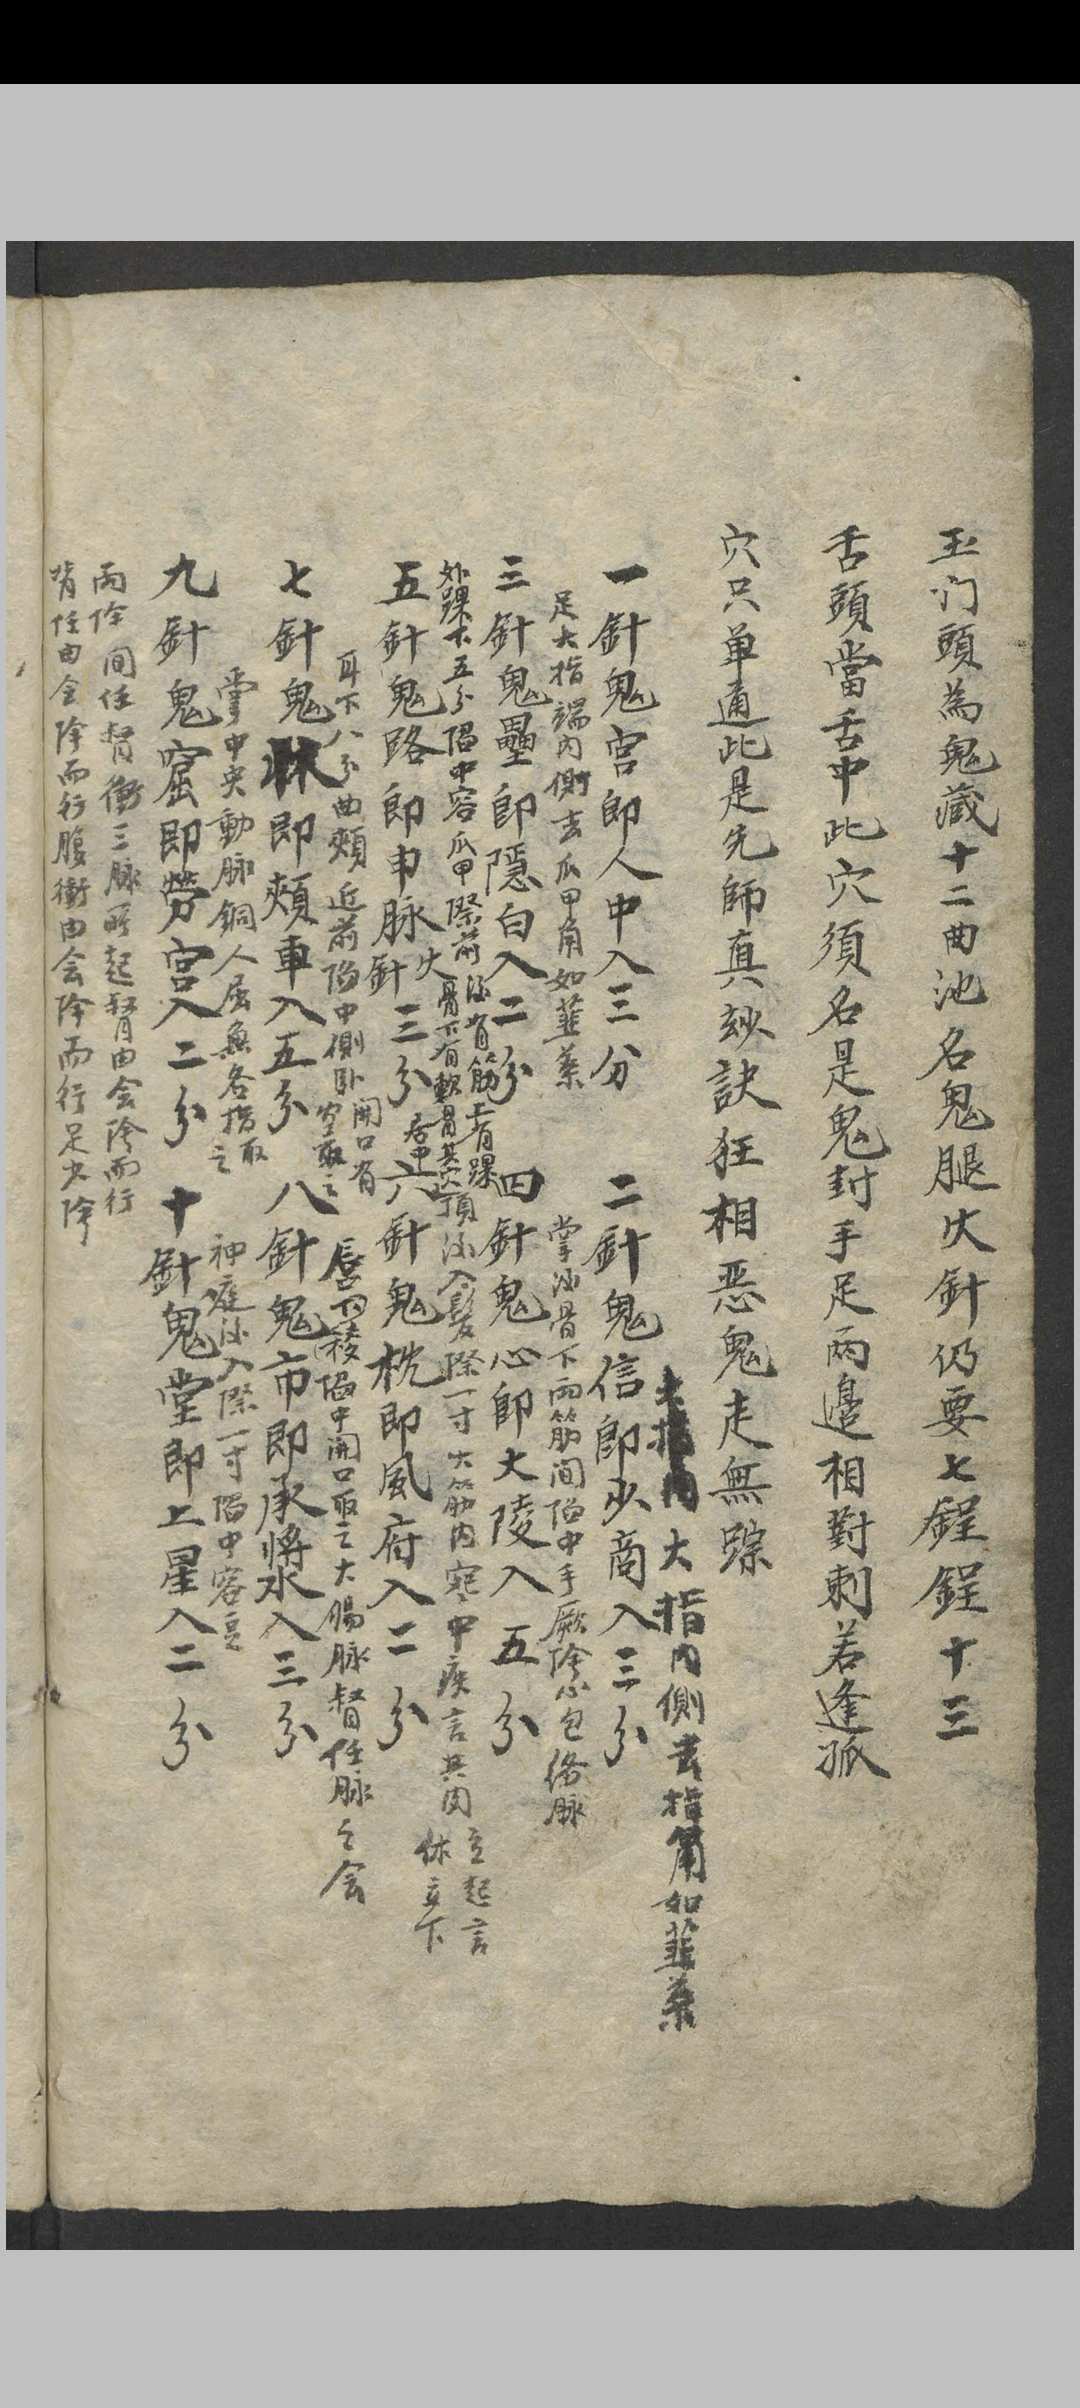 玉门頭為鬼藏十二曲池名鬼腿火針仍要七鋥鋥十三
舌頭當舌中此穴須名是鬼封手足兩邊相對刺若逢孤
穴只单通此是先師真玅訣狂相恶鬼走無踪
大指内側去指角如韮葉
一針鬼宮即人中入三分 二針鬼信即少商入三分
足大指端内側去爪甲角如韮葉 掌後骨下兩筋間陷中手厥陰心包絡脉
三針鬼壘即隱白入二分 四針鬼心即大陵入五分
外踝下五分陷中容爪甲際前後有筋上有踝骨下有軟骨其穴居中 項後入髮際一寸大筋内宛中疾言其肉立起言休立下
五針鬼路即申脉火針三分 六針鬼枕即風府入二分
耳下八分曲頰近前陷中側卧開口有空取之 唇四稜陷中開口取之大腸脉督任脉之会
七針鬼牀即頰車入五分 八針鬼市即承漿入三分
掌中央動脉銅人屈無名指取之 神庭後入際一寸陷中容豆
九針鬼窟即勞宮入二分 十針鬼堂即上星入二分
兩伱間任督衝三脉所起督由会陰而行
背任由会陰而行腹衝由会陰而行足少陰